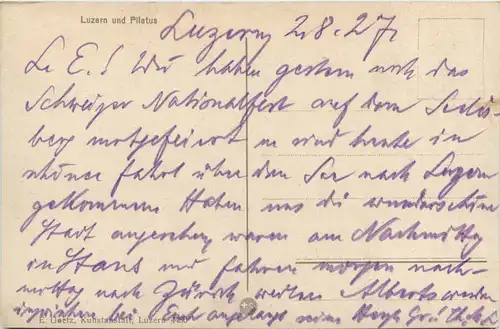 Luzern und Pilatus
Luzern, 2.8.27.
L. E.! Wir haben gestern noch das
Schweizer Nationalfest auf dem Seelis-
berg mitgefeiert u sind heute in
schöner Fahrt über den See nach Luzern
gekommen Haben uns die wunderschöne
Stadt angesehen, waren am Nachmittag
in Stans und fahren morgen nach-
mittag nach Zürich werden Albert wieder
bei Euch seine Herzl. Grüße
E. Goetz, Kunstanstalt, Luzern